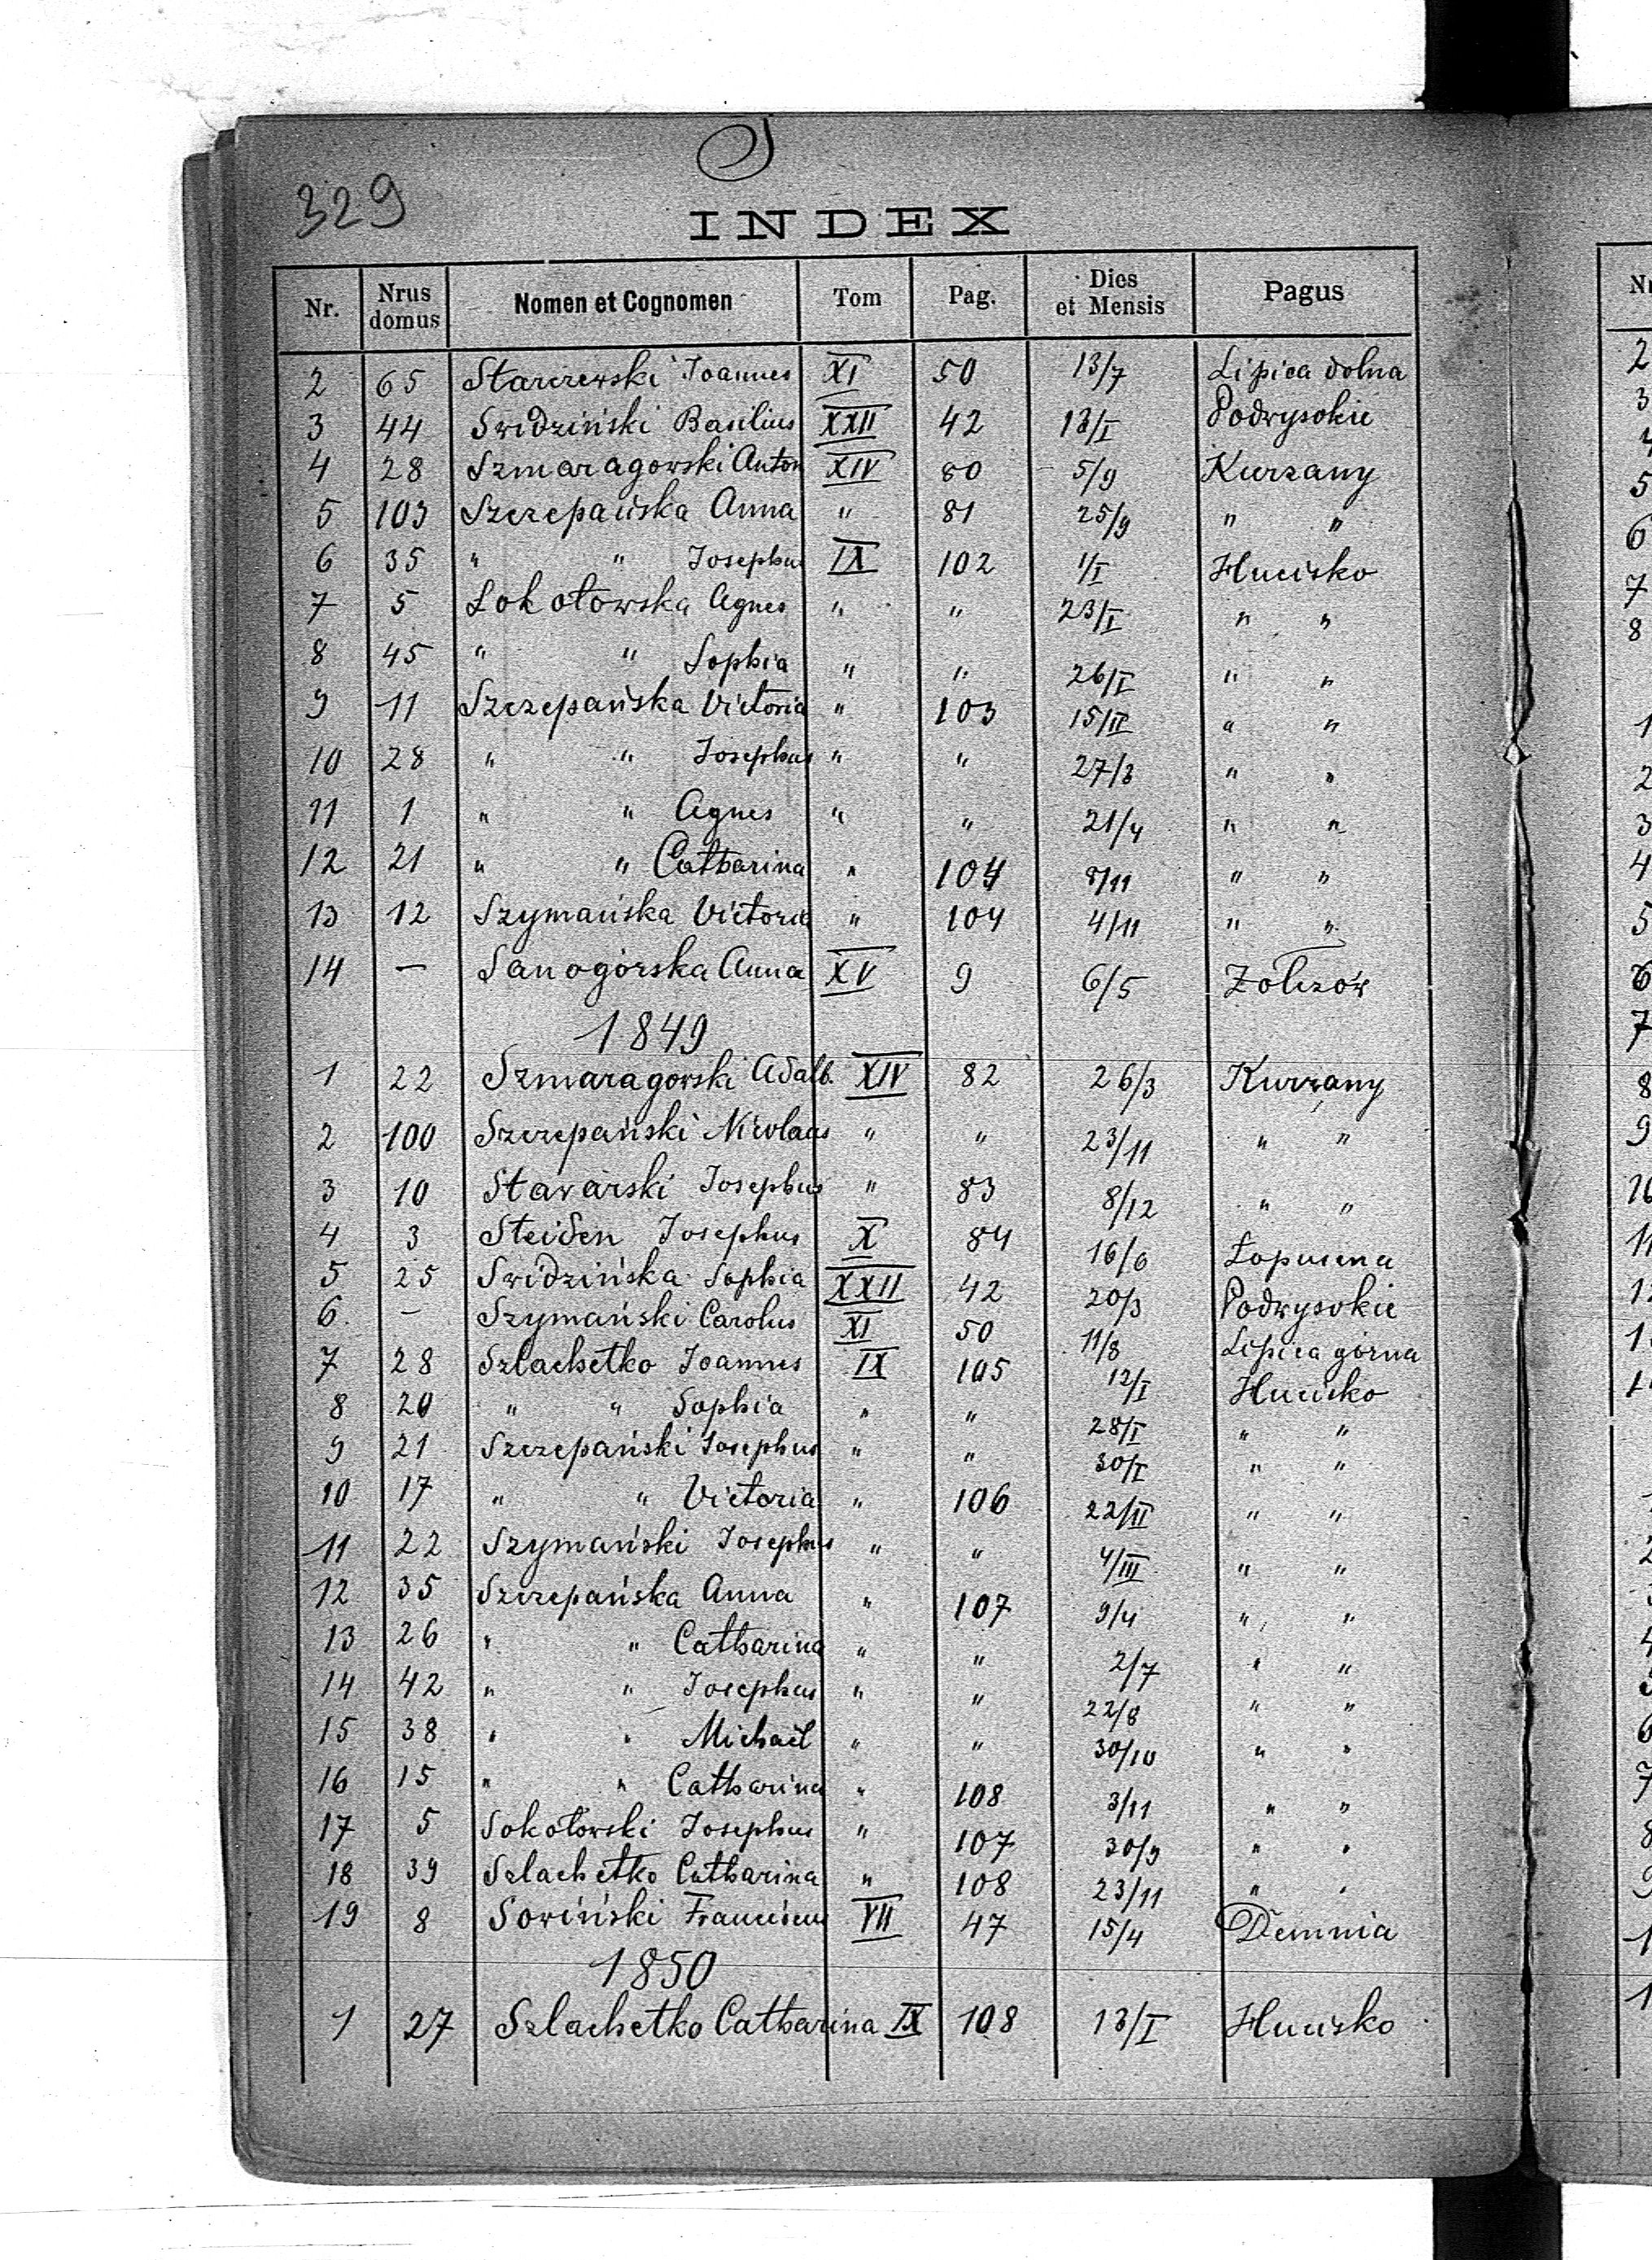 S
329
INDEX
Nr. Nrus domus Nomen et Cognomen Tom Pag. Dies et Mensis Pagus
2 65 Starczewski Joannes XI 50 13/7 Lipica dolna
3 44 Swidziński Basilius XXII 42 13/I Podwysokie
4 28 Szmaragowski Anton XIV 80 5/9 Kurzany
5 103 Szczepańska Anna " 81 25/9 " "
6 35 " " Josephus IX 102 1/I Hucisko
7 5 Sokołowska Agnes " " 23/I " "
8 45 " " Sophia " " 26/I " "
9 11 Szczepańska Victoria " 103 15/II " "
10 28 " " Josephus " " 27/3 " "
11 1 " " Agnes " " 21/4 " "
12 21 " " Catharina " 104 8/11 " "
13 12 Szymańska Victoria " 104 4/11 " "
14 — Sanogórska Anna XV 9 6/5 Żołczów
1849
1 22 Szmaragowski Adalb. XIV 82 26/3 Kurzany
2 100 Szczepański Nicolaus " " 23/11 " "
3 10 Stawarski Josephus " 83 8/12 " "
4 3 Steiden Josephus X 84 16/6 Łopuszna
5 25 Swidzińska Sophia XXII 42 20/3 Podwysokie
6. — Szymański Carolus XI 50 11/8 Lipica górna
7 28 Szlachetko Joannes IX 105 12/I Hucisko
8 20 " " Sophia " " 28/I " "
9 21 Szczepański Josephus " " 30/I " "
10 17 " " Victoria " 106 22/II " "
11 22 Szymański Josephus " " 4/III " "
12 35 Szczepańska Anna " 107 9/4 " "
13 26 " " Catharina " " 2/7 " "
14 42 " " Josephus " " 22/8 " "
15 38 " " Michaël " " 30/10 " "
16 15 " " Catharina " 108 3/11 " "
17 5 Sokołowski Josephus " 107 30/9 " "
18 39 Szlachetko Catharina " 108 23/11 " "
19 8 Sowiński Franciscus VII 47 15/4 Demnia
1850
1 27 Szlachetko Catharina IX 108 13/I Hucisko